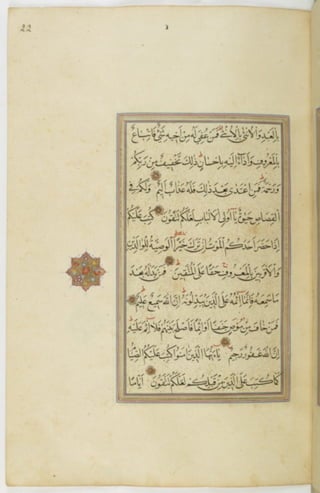 22
بِالْعَبْدِ وَالْأُنْثَىٰ بِالْأُنْثَىٰ فَمَنْ عُفِيَ لَهُ مِنْ أَخِيهِ شَيْءٌ فَاتِّبَاعٌ
بِالْمَعْرُوفِ وَأَدَاءٌ إِلَيْهِ بِإِحْسَانٍ ذَٰلِكَ تَخْفِيفٌ مِنْ رَبِّكُمْ
وَرَحْمَةٌ فَمَنِ اعْتَدَىٰ بَعْدَ ذَٰلِكَ فَلَهُ عَذَابٌ أَلِيمٌ وَلَكُمْ فِي
الْقِصَاصِ حَيَوٰةٌ يَا أُولِي الْأَلْبَابِ لَعَلَّكُمْ تَتَّقُونَ كُتِبَ عَلَيْكُمْ
إِذَا حَضَرَ أَحَدَكُمُ الْمَوْتُ إِنْ تَرَكَ خَيْرًا الْوَصِيَّةُ لِلْوَالِدَيْنِ
وَالْأَقْرَبِينَ بِالْمَعْرُوفِ حَقًّا عَلَى الْمُتَّقِينَ فَمَنْ بَدَّلَهُ بَعْدَ
مَا سَمِعَهُ فَإِنَّمَا إِثْمُهُ عَلَى الَّذِينَ يُبَدِّلُونَهُ إِنَّ اللَّهَ سَمِيعٌ عَلِيمٌ
فَمَنْ خَافَ مِنْ مُوصٍ جَنَفًا أَوْ إِثْمًا فَأَصْلَحَ بَيْنَهُمْ فَلَا إِثْمَ عَلَيْهِ
إِنَّ اللَّهَ غَفُورٌ رَحِيمٌ يَا أَيُّهَا الَّذِينَ آمَنُوا كُتِبَ عَلَيْكُمُ الصِّيَامُ
كَمَا كُتِبَ عَلَى الَّذِينَ مِنْ قَبْلِكُمْ لَعَلَّكُمْ تَتَّقُونَ أَيَّامًا